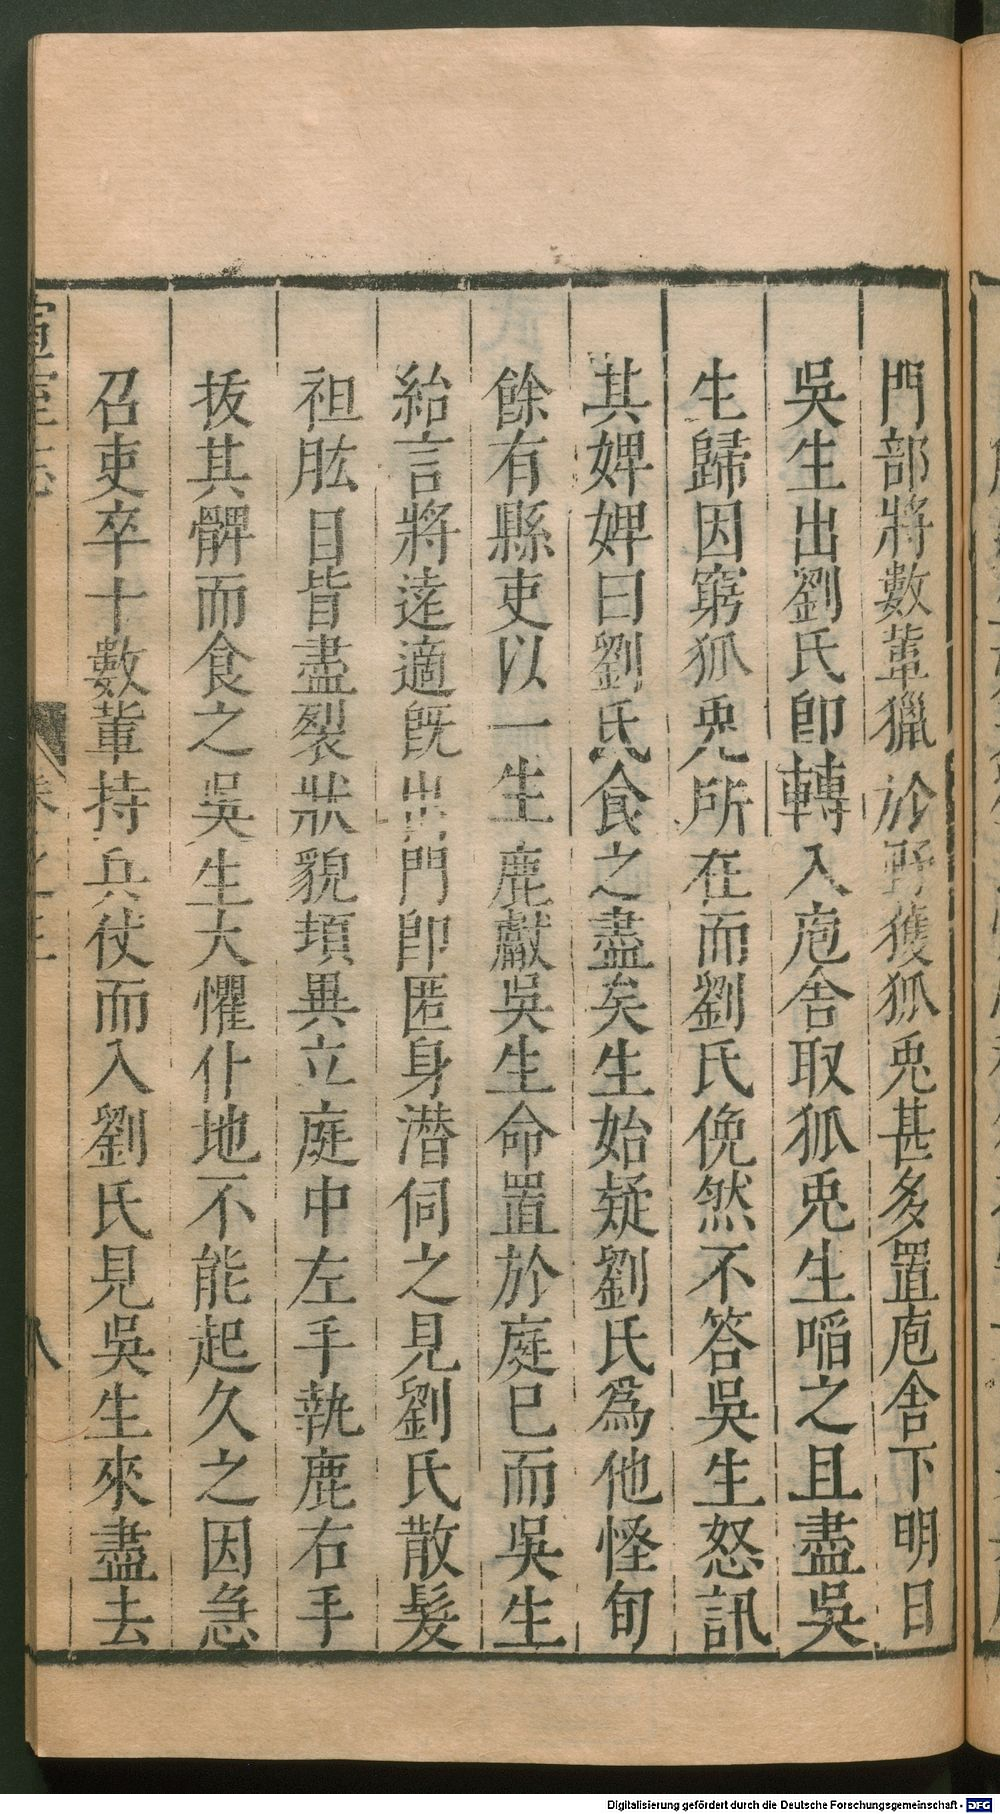 門部將數軰獵於野獲狐兎甚多置庖舍下明日
吳生出劉氏卽轉入庖舍取狐兎生啗之且盡吳
生歸因窮狐兎所在而劉氏俛然不答吳生怒訊
其婢婢曰劉氏食之盡矣生始疑劉氏為他怪旬
餘有縣吏以一生鹿獻吳生命置於庭已而吳生
紿言將遠適旣出門卽匿身潛伺之見劉氏散髮
袒肱目眥盡裂狀貌頓異立庭中左手執鹿右手
拔其髀而食之吳生大懼仆地不能起久之因急
召吏卒十數軰持兵仗而入劉氏見吳生來盡去
宣室志 卷之三 八
Digitalisierung gefördert durch die Deutsche Forschungsgemeinschaft - DFG